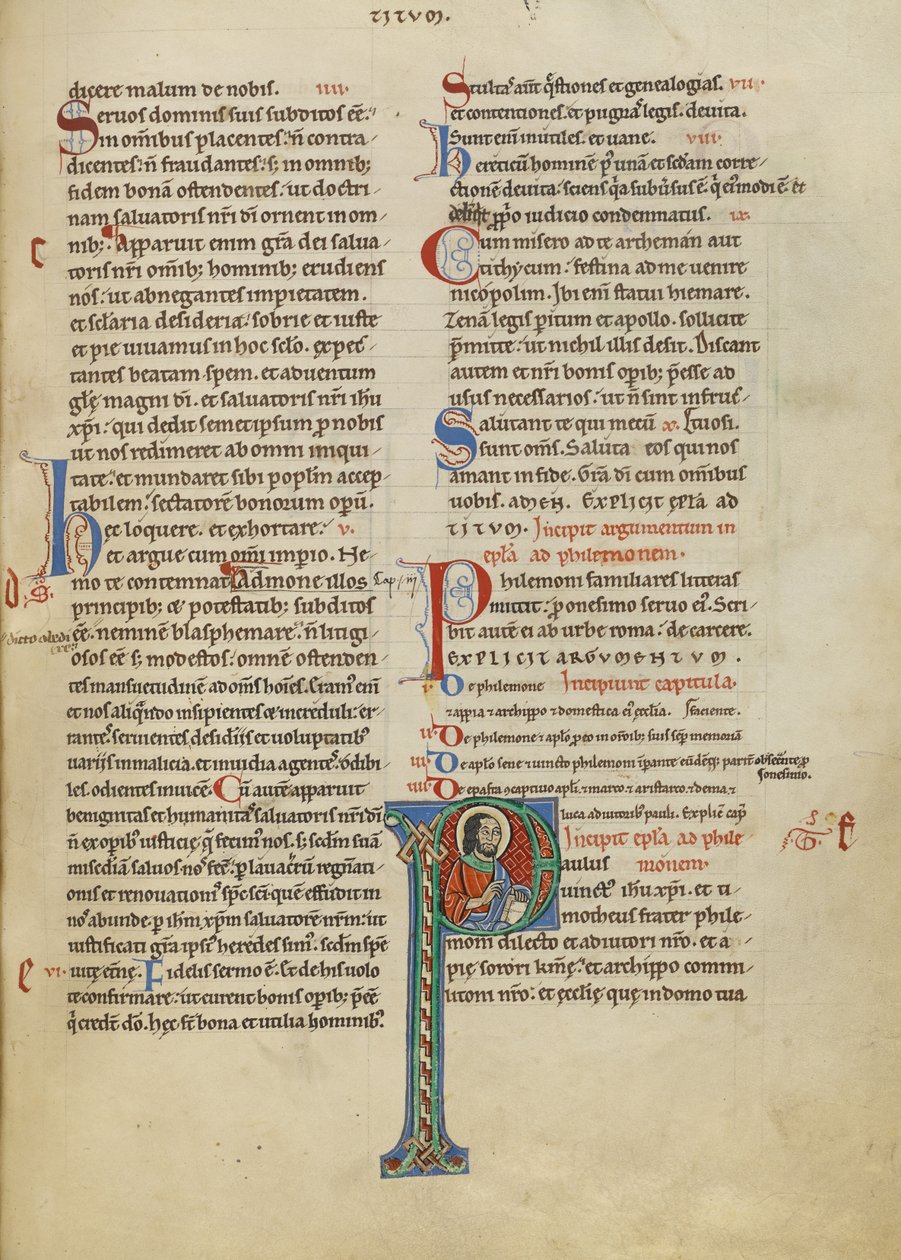 TITVM.
dicere malum de nobis. iiii.
Servos dominis suis subditos eē.
in om̄ibus placentes. n̄ contra-
dicentes. n̄ fraudantes. s; in omnib;
fidem bonā ostendentes. ut doctri-
nam salvatoris nr̄i dī ornent in om-
nib;. Apparuit enim gr̄a dei salva-
toris nr̄i om̄ib; hominib; erudiens
nos. ut abnegantes impietatem.
et sclaria desideria. sobrie et iuste
et pie vivamus in hoc sclo. expec-
tantes beatam spem. et adventum
glę magni dī. et salvatoris nr̄i ihu
xpi. qui dedit semet ipsum pro nobis
ut nos redimeret ab omni iniqui-
tate. et mundaret sibi poplm accep-
tabilem. sectatorē bonorum opū.
hęc loquere. et exhortare. v.
et argue cum om̄i imperio. Ne-
mo te contemnat. Admone illos Cap. iii
principib; & potestatib; subditos
dicto obedire
eē. neminē blasphemare. n̄ litigi-
osos eē s; modestos. omnē ostenden-
tes mansuetudinē ad om̄s hoīes. Eram' eni
et nos aliq̄ndo insipientes & increduli. er-
rantes. servientes desideriis et voluptatib'
variis in malicia et invidia agentes. odibi-
les. odientes invicē. Cū autē apparuit
benignitas et humanitas salvatoris nr̄i dī
n̄ ex operib' iusticię q̄ fecim' nos. s; scdm suā
misc̄diā salvos nos fec̄. p lavacrū regn̄ati-
onis et renovationis sps sci. quē effudit in
nos abunde. p ihm xpm salvatorē nrm. ut
iustificati gr̄a ipsi' heredes sim'. scdm spē
e vi. vitę etn̄ę. Fidelis sermo ē. Et de his volo
te confirmare. ut curent bonis opib; p̄eē
q̄ credt dō. hęc st bona et utilia hominib'.
Stultas aut q̄stiones et genealogias. vii.
et contentiones. et pugnas legis. devita.
Sunt eni inutiles. et vane. viii.
hereticū hominē p' unā et scdam corre-
ctionē devita. sciens q̄a subversus ē. q̄ ei'modi ē. et
delinqt pprio iudicio condemnatus. ix.
Cum misero ad te archeman aut
tithycum. festina ad me venire
nicopolim. Ibi eni statui hiemare.
Zenā legis pitum et apollo. sollicite
p̄mitte. ut nichil illis desit. Discant
autem et nr̄i bonis opib; p̄esse ad
usus necessarios. ut n̄ sint infruc-
Salutant te qui mecū x. tuosi.
sunt om̄s. Saluta eos qui nos
amant in fide. Gr̄a dī cum om̄ibus
vobis. AMEN. EXPLICIT EPLA AD
TITVM. Incipit argumentum in
epła ad philemonem.
Philemoni familiares litteras
mittit. p onesimo servo ei'. Scri-
bit autē ei ab urbe roma. de carcere.
EXPLICIT ARGVMENTVM.
i. De philemone Incipiunt capitula.
& appia & archippo & domestica ei' ecclia. s faciente.
ii. De philemone & aplo p eo in om̄ib; suis semp memoriā
iii. De aplo sene & vincto philemoni impante eundēq; parit obsecrante p
honesimo.
iiii. De epafra & captivo apli. & marco & aristarco & dema &
luca adiutorib' pauli. Explic̄ cap
Incipit epla ad phile-
Paulus monem.
vinct' ihu xpi. et ti-
motheus frater phile-
moni dilecto et adiutori nro. et a-
pię sorori kmę. et archippo commi-
litoni nro. et ecclię quę in domo tua